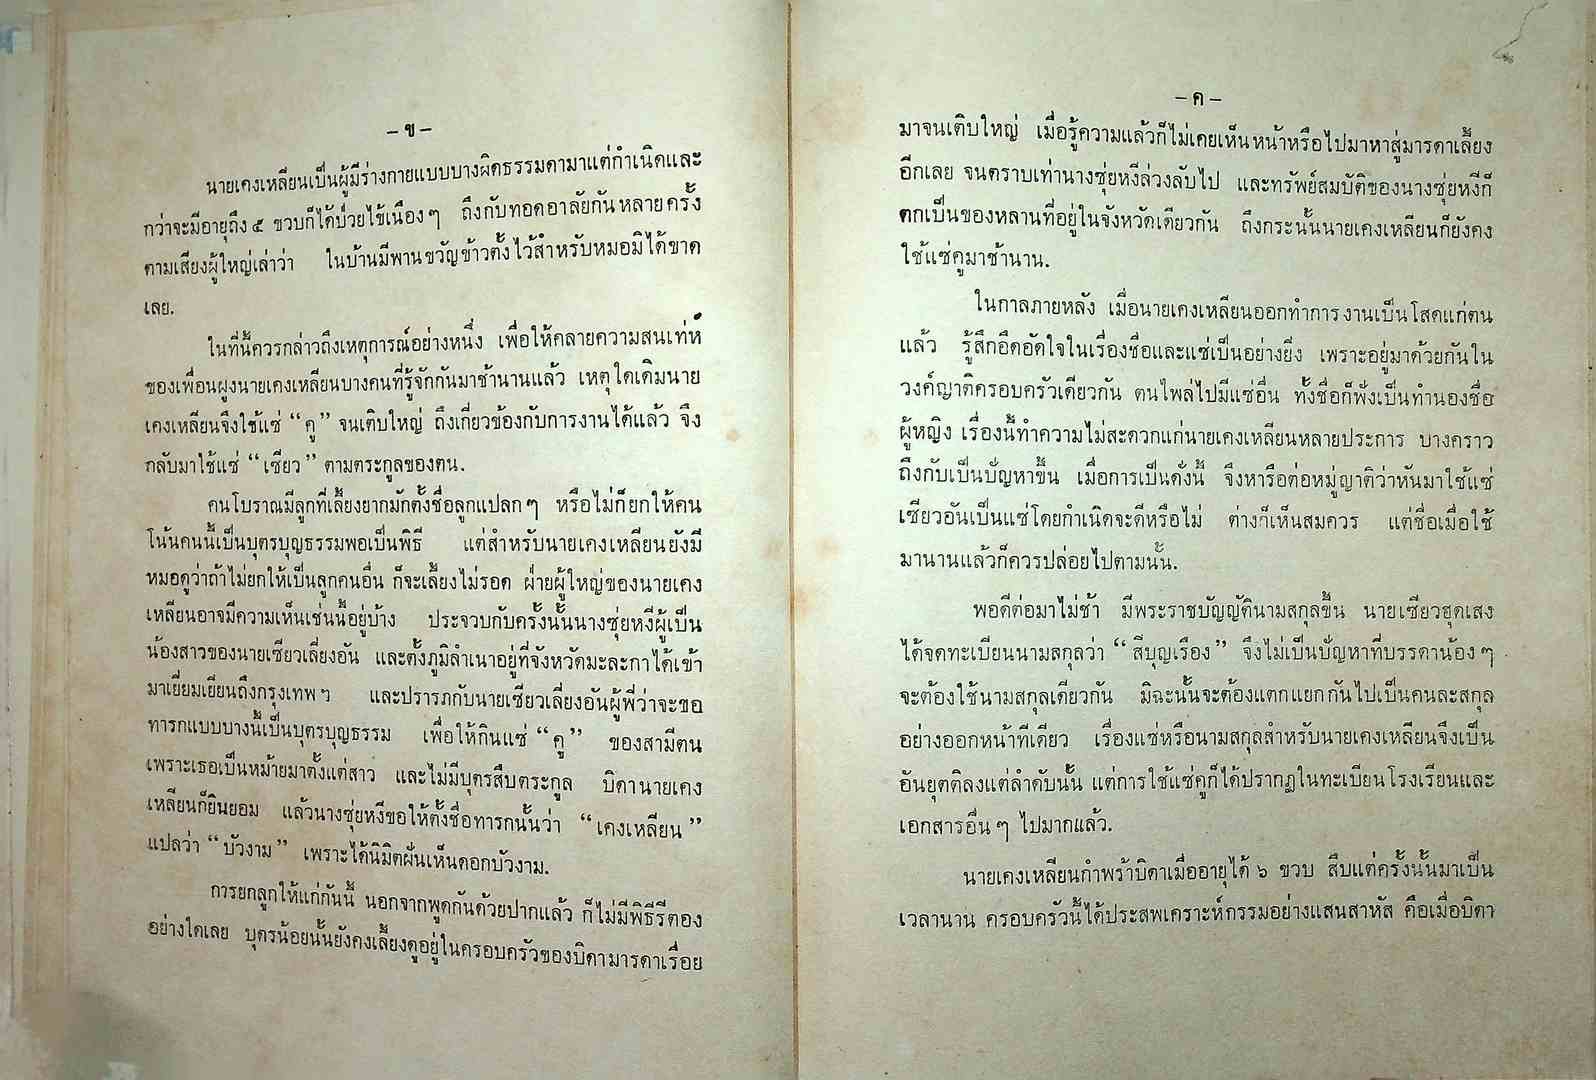 – ข –
นายเคงเหลียนเป็นผู้มีร่างกายแบบบางผิดธรรมดามาแต่กำเนิดและ
กว่าจะมีอายุถึง ๕ ขวบก็ได้ป่วยไข้เนืองๆ ถึงกับทอดอาลัยกันหลายครั้ง
ตามเสียงผู้ใหญ่เล่าว่า ในบ้านมีพานขวัญข้าวตั้งไว้สำหรับหมอมิได้ขาด
เลย.
ในที่นี้ควรกล่าวถึงเหตุการณ์อย่างหนึ่ง เพื่อให้คลายความสนเท่ห์
ของเพื่อนฝูงนายเคงเหลียนบางคนที่รู้จักกันมาช้านานแล้ว เหตุใดเดิมนาย
เคงเหลียนจึงใช้แซ่ “คู” จนเติบใหญ่ ถึงเกี่ยวข้องกับการงานได้แล้ว จึง
กลับมาใช้แซ่ “เซียว” ตามตระกูลของตน.
คนโบราณมีลูกที่เลี้ยงยากมักตั้งชื่อลูกแปลกๆ หรือไม่ก็ยกให้คน
โน้นคนนี้เป็นบุตรบุญธรรมพอเป็นพิธี แต่สำหรับนายเคงเหลียนยังมี
หมอดูว่าถ้าไม่ยกให้เป็นลูกคนอื่น ก็จะเลี้ยงไม่รอด ฝ่ายผู้ใหญ่ของนายเคง
เหลียนอาจมีความเห็นเช่นนี้อยู่บ้าง ประจวบกับครั้งนั้นนางซุ่ยหงีผู้เป็น
น้องสาวของนายเซียวเลี่ยงอัน และตั้งภูมิลำเนาอยู่ที่จังหวัดมะละกาได้เข้า
มาเยี่ยมเยียนถึงกรุงเทพฯ และปรารภกับนายเซียวเลี่ยงอันผู้พี่ว่าจะขอ
ทารกแบบบางนี้เป็นบุตรบุญธรรม เพื่อให้กินแซ่ “คู” ของสามีตน
เพราะเธอเป็นหม้ายมาตั้งแต่สาว และไม่มีบุตรสืบตระกูล บิดานายเคง
เหลียนก็ยินยอม แล้วนางซุ่ยหงีขอให้ตั้งชื่อทารกนั้นว่า “เคงเหลียน”
แปลว่า “บัวงาม” เพราะได้นิมิตฝันเห็นดอกบัวงาม.
การยกลูกให้แก่กันนี้ นอกจากพูดกันด้วยปากแล้ว ก็ไม่มีพิธีรีตอง
อย่างใดเลย บุตรน้อยนั้นยังคงเลี้ยงดูอยู่ในครอบครัวของบิดามารดาเรื่อย
– ค –
มาจนเติบใหญ่ เมื่อรู้ความแล้วก็ไม่เคยเห็นหน้าหรือไปมาหาสู่มารดาเลี้ยง
อีกเลย จนตราบเท่านางซุ่ยหงีล่วงลับไป และทรัพย์สมบัติของนางซุ่ยหงีก็
ตกเป็นของหลานที่อยู่ในจังหวัดเดียวกัน ถึงกระนั้นนายเคงเหลียนก็ยังคง
ใช้แซ่คูมาช้านาน.
ในกาลภายหลัง เมื่อนายเคงเหลียนออกทำการงานเป็นโสดแก่ตน
แล้ว รู้สึกอึดอัดใจในเรื่องชื่อและแซ่เป็นอย่างยิ่ง เพราะอยู่มาด้วยกันใน
วงค์ญาติครอบครัวเดียวกัน ตนไพล่ไปมีแซ่อื่น ทั้งชื่อก็ฟังเป็นทำนองชื่อ
ผู้หญิง เรื่องนี้ทำความไม่สะดวกแก่นายเคงเหลียนหลายประการ บางคราว
ถึงกับเป็นปัญหาขึ้น เมื่อการเป็นดั่งนี้ จึงหารือต่อหมู่ญาติว่าหันมาใช้แซ่
เซียวอันเป็นแซ่โดยกำเนิดจะดีหรือไม่ ต่างก็เห็นสมควร แต่ชื่อเมื่อใช้
มานานแล้วก็ควรปล่อยไปตามนั้น.
พอดีต่อมาไม่ช้า มีพระราชบัญญัตินามสกุลขึ้น นายเซียวฮุดเสง
ได้จดทะเบียนนามสกุลว่า “สีบุญเรือง” จึงไม่เป็นปัญหาที่บรรดาน้องๆ
จะต้องใช้นามสกุลเดียวกัน มิฉะนั้นจะต้องแตกแยกกันไปเป็นคนละสกุล
อย่างออกหน้าทีเดียว เรื่องแซ่หรือนามสกุลสำหรับนายเคงเหลียนจึงเป็น
อันยุตติลงแต่ลำดับนั้น แต่การใช้แซ่คูก็ได้ปรากฏในทะเบียนโรงเรียนและ
เอกสารอื่นๆ ไปมากแล้ว.
นายเคงเหลียนกำพร้าบิดาเมื่ออายุได้ ๖ ขวบ สืบแต่ครั้งนั้นมาเป็น
เวลานาน ครอบครัวนี้ได้ประสพเคราะห์กรรมอย่างแสนสาหัส คือเมื่อบิดา